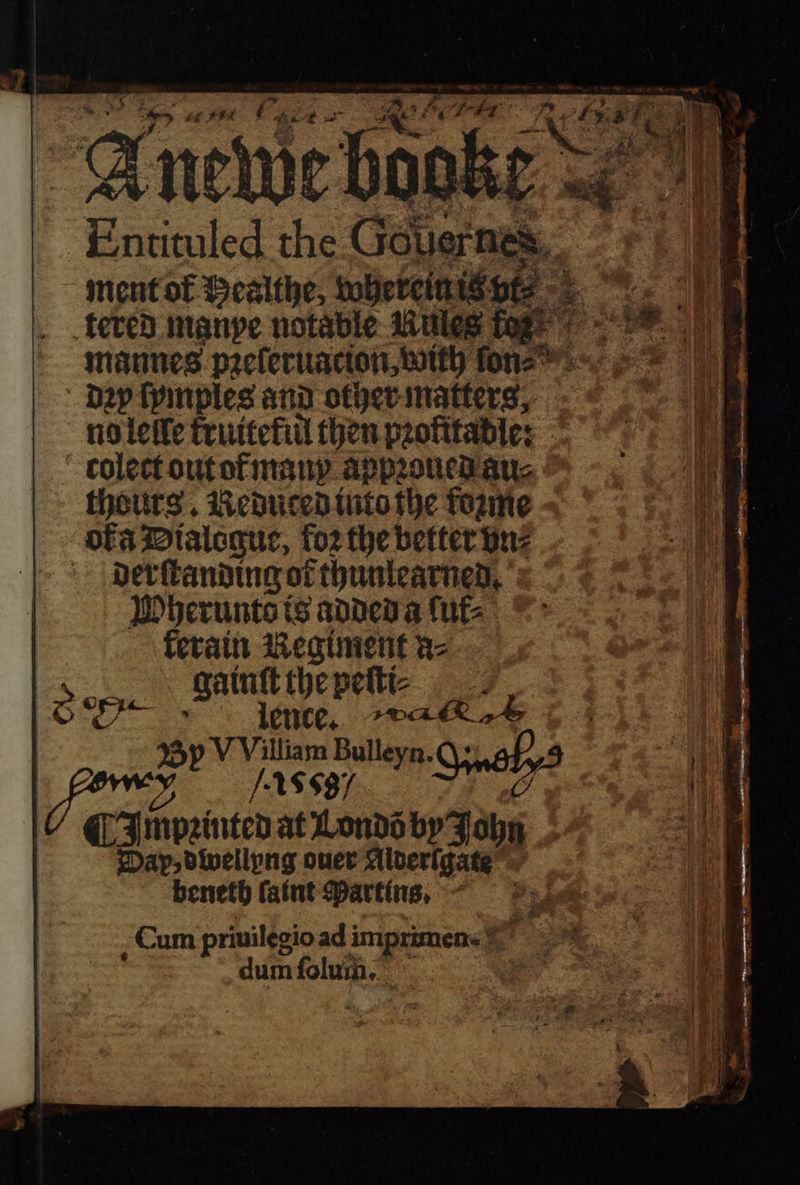 A newe booke
Entituled the Gouernes
ment of Healthe, wherein is vt⸗
tered manye notable Rules for
mannes preseruacion, with son⸗
dry symples and other matters,
no lesse fruiteful then profitable:
colect out of many approued au⸗
thours. Reduced into the forme
of a Dialogue, for the better vn⸗
derstanding of thunlearned.
Wherunto is added a suf⸗
ferain Regiment a⸗
gainst the pesti⸗
lence.
By VVilliam Bulleyn.
¶ Imprinted at Londō by John
Day, dwellyng ouer Aldersgate
beneth saint Martins.
Cum priuilegio ad imprimen⸗
dum solum.